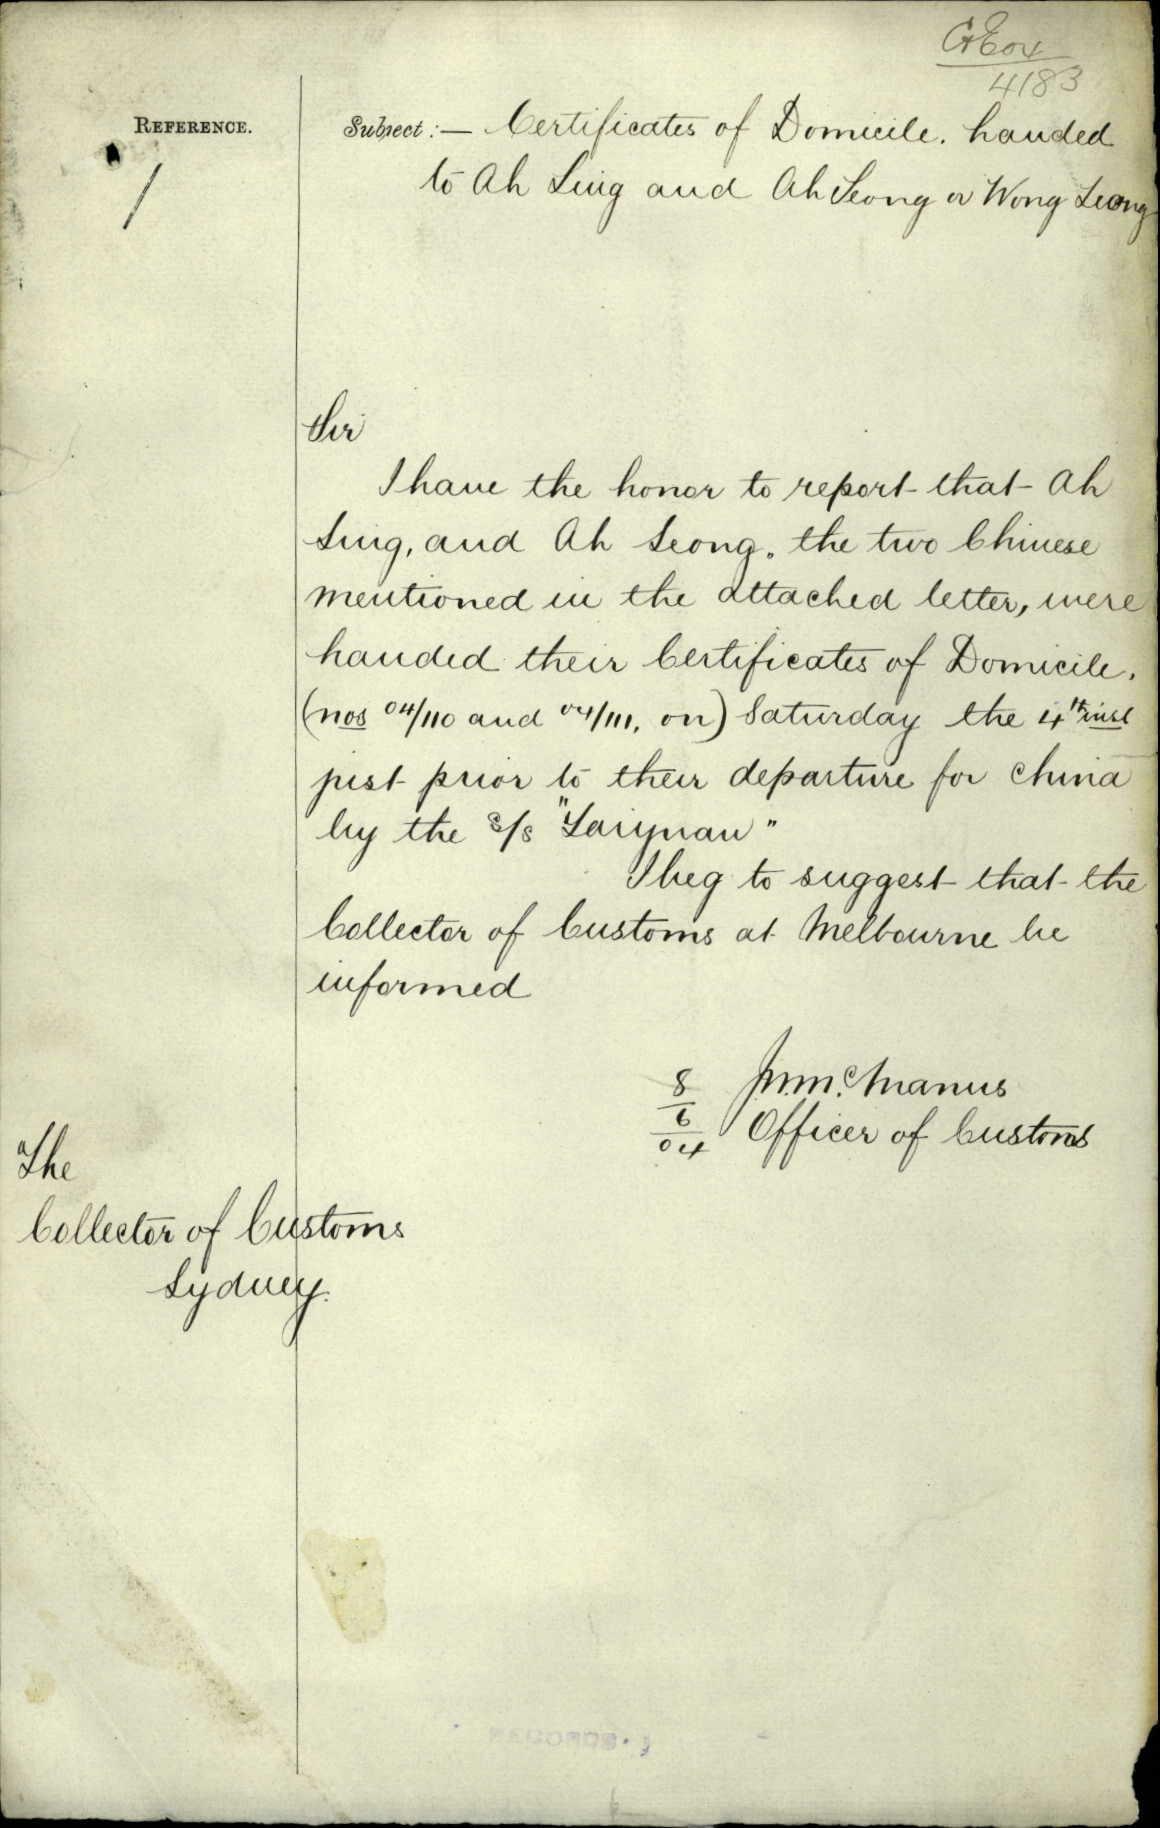 4183
REFERENCE.
Subject:— Certificates of Domicile. handed
to Ah Sing and Ah Leong or Wong Leong
Sir
I have the honor to report that Ah
Sing, and Ah Leong. the two Chinese
mentioned in the attached letter, were
handed their Certificates of Domicile.
(nos 04/110 and 04/111, on) Saturday the 4th inst
just prior to their departure for China
by the S/S "Taiyuan"
I beg to suggest that the
Collector of Customs at Melbourne be
informed
8/6/04 J.W.McManus
Officer of Customs
The
Collector of Customs
Sydney.
RECORDS.